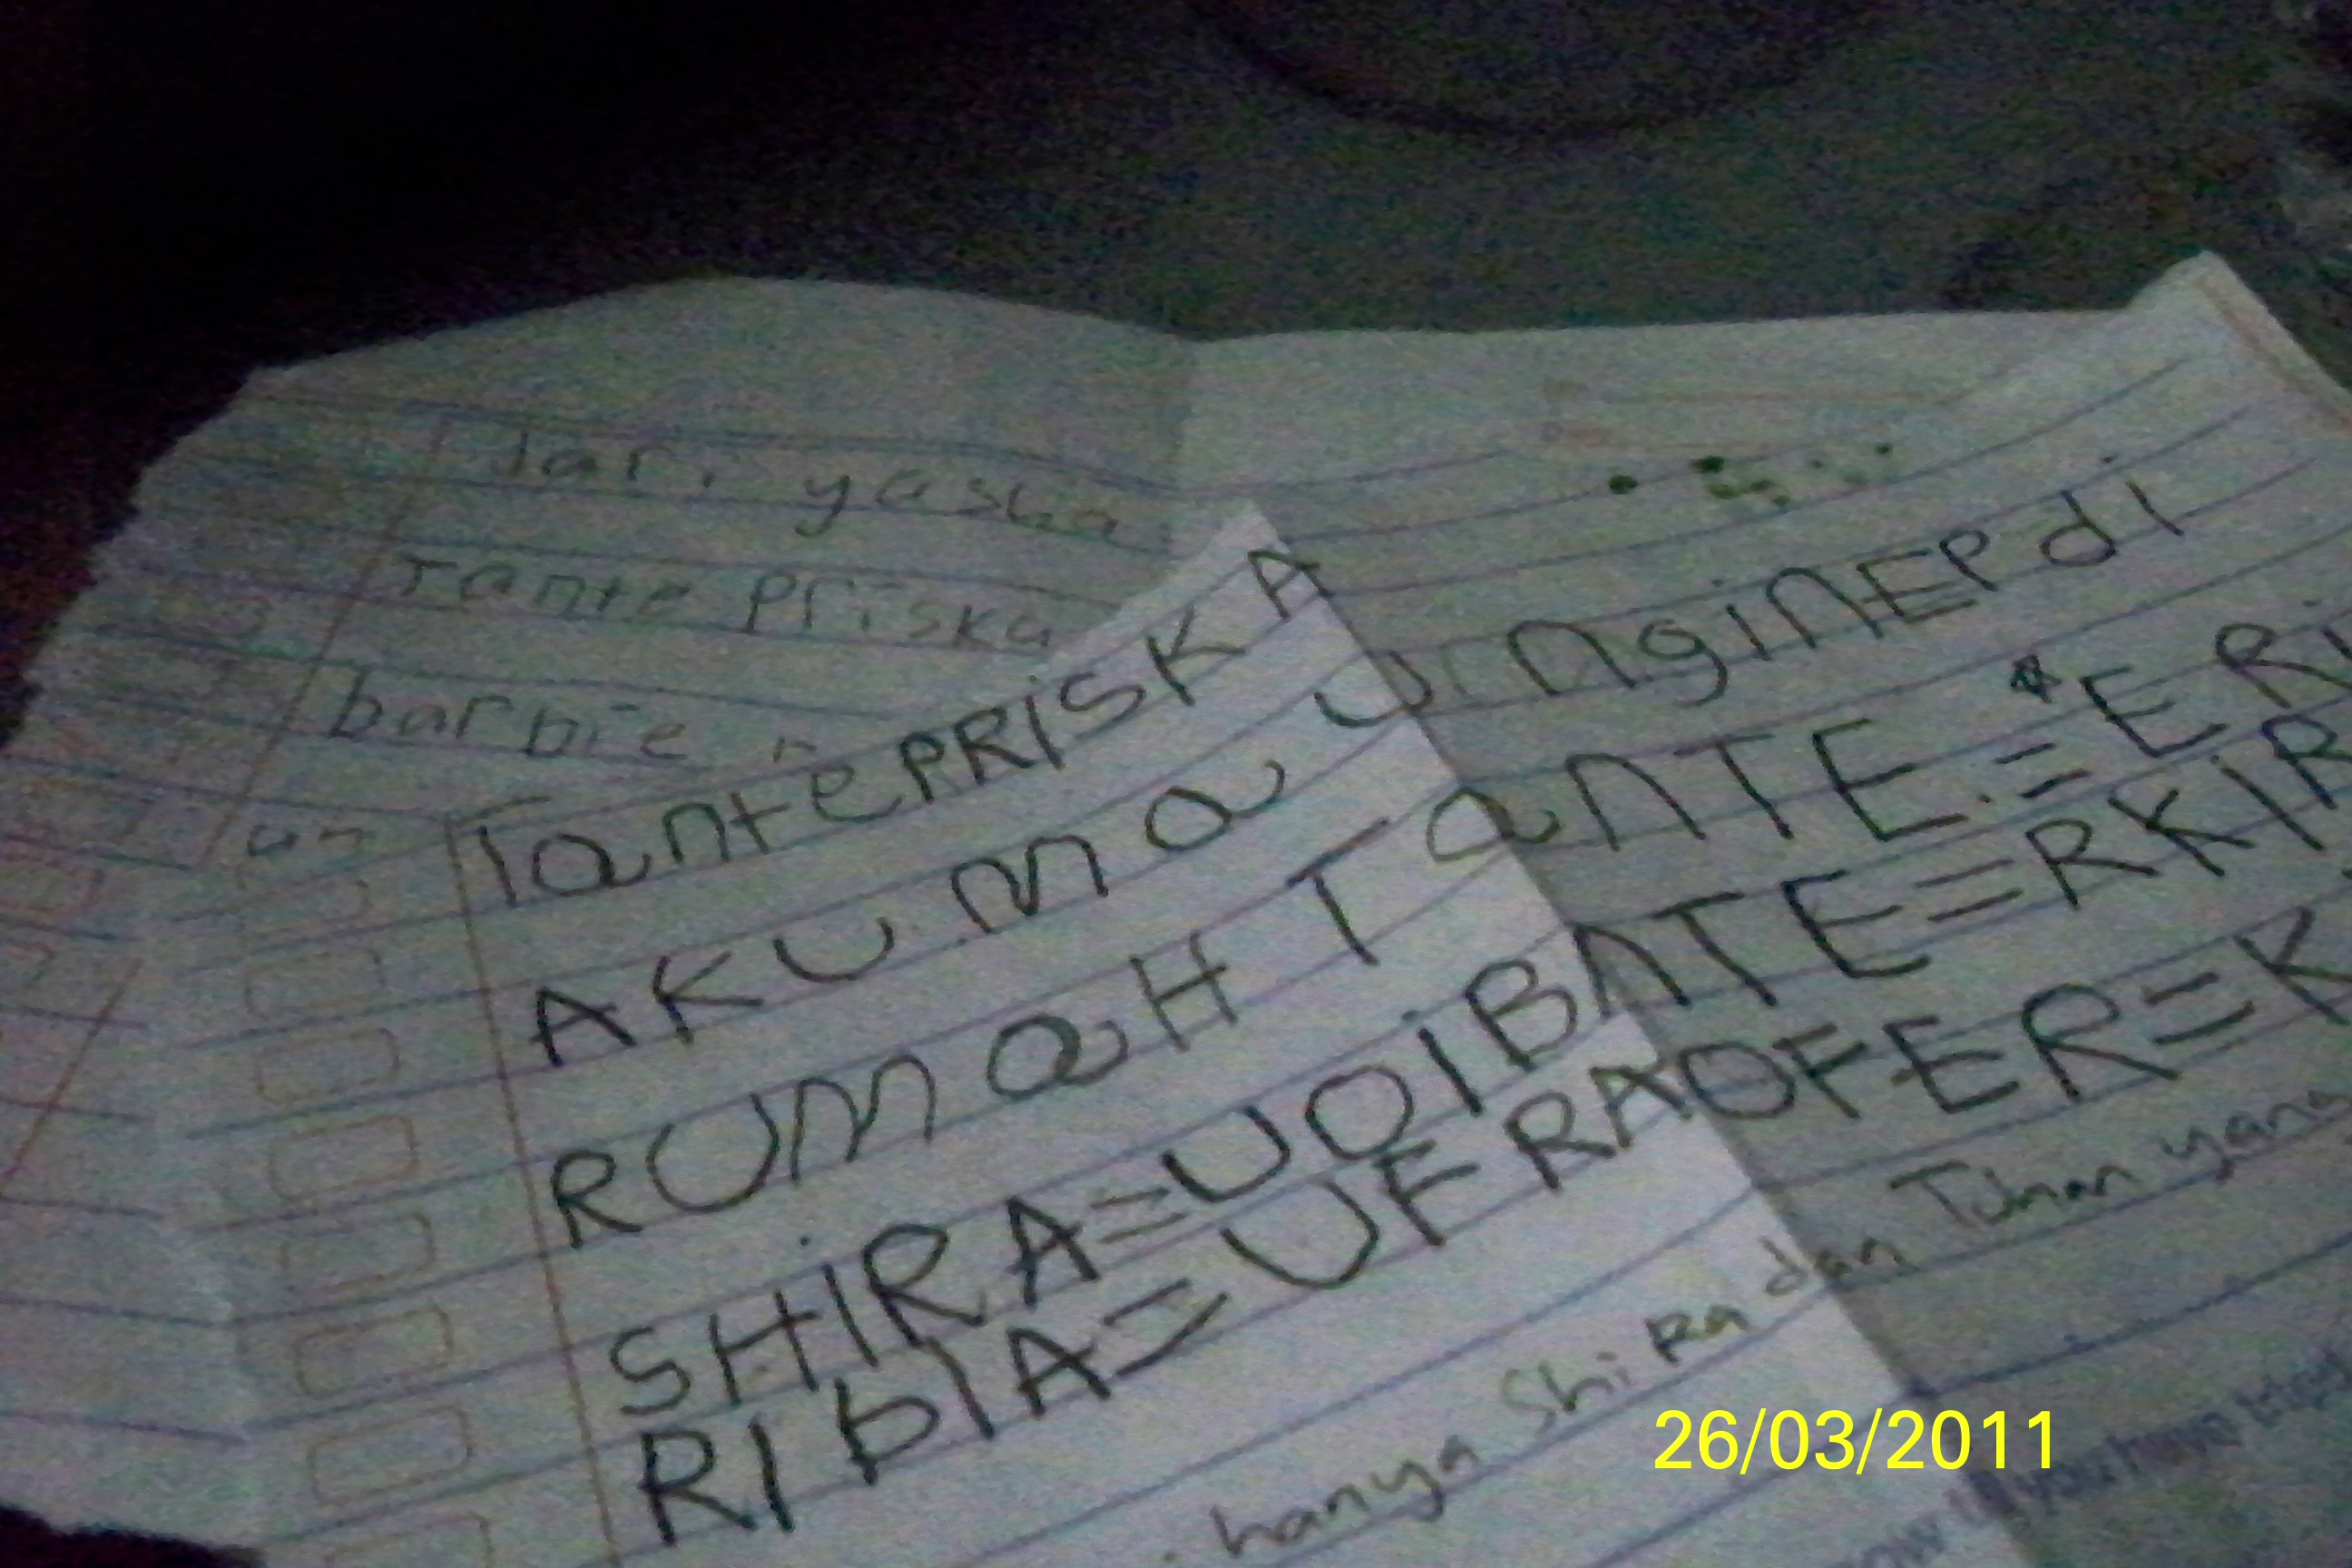 dari yasha
Tante Priska
barbie
Tante PRiSKA
AKU Mau nginEP di
RUMaH TanTE.=E RI
SHiRA=UOIBNTE=RKIR
RIbIA=UFRAOFER=K
. hanya ShiRa dan Tuhan yang
26/03/2011
you have